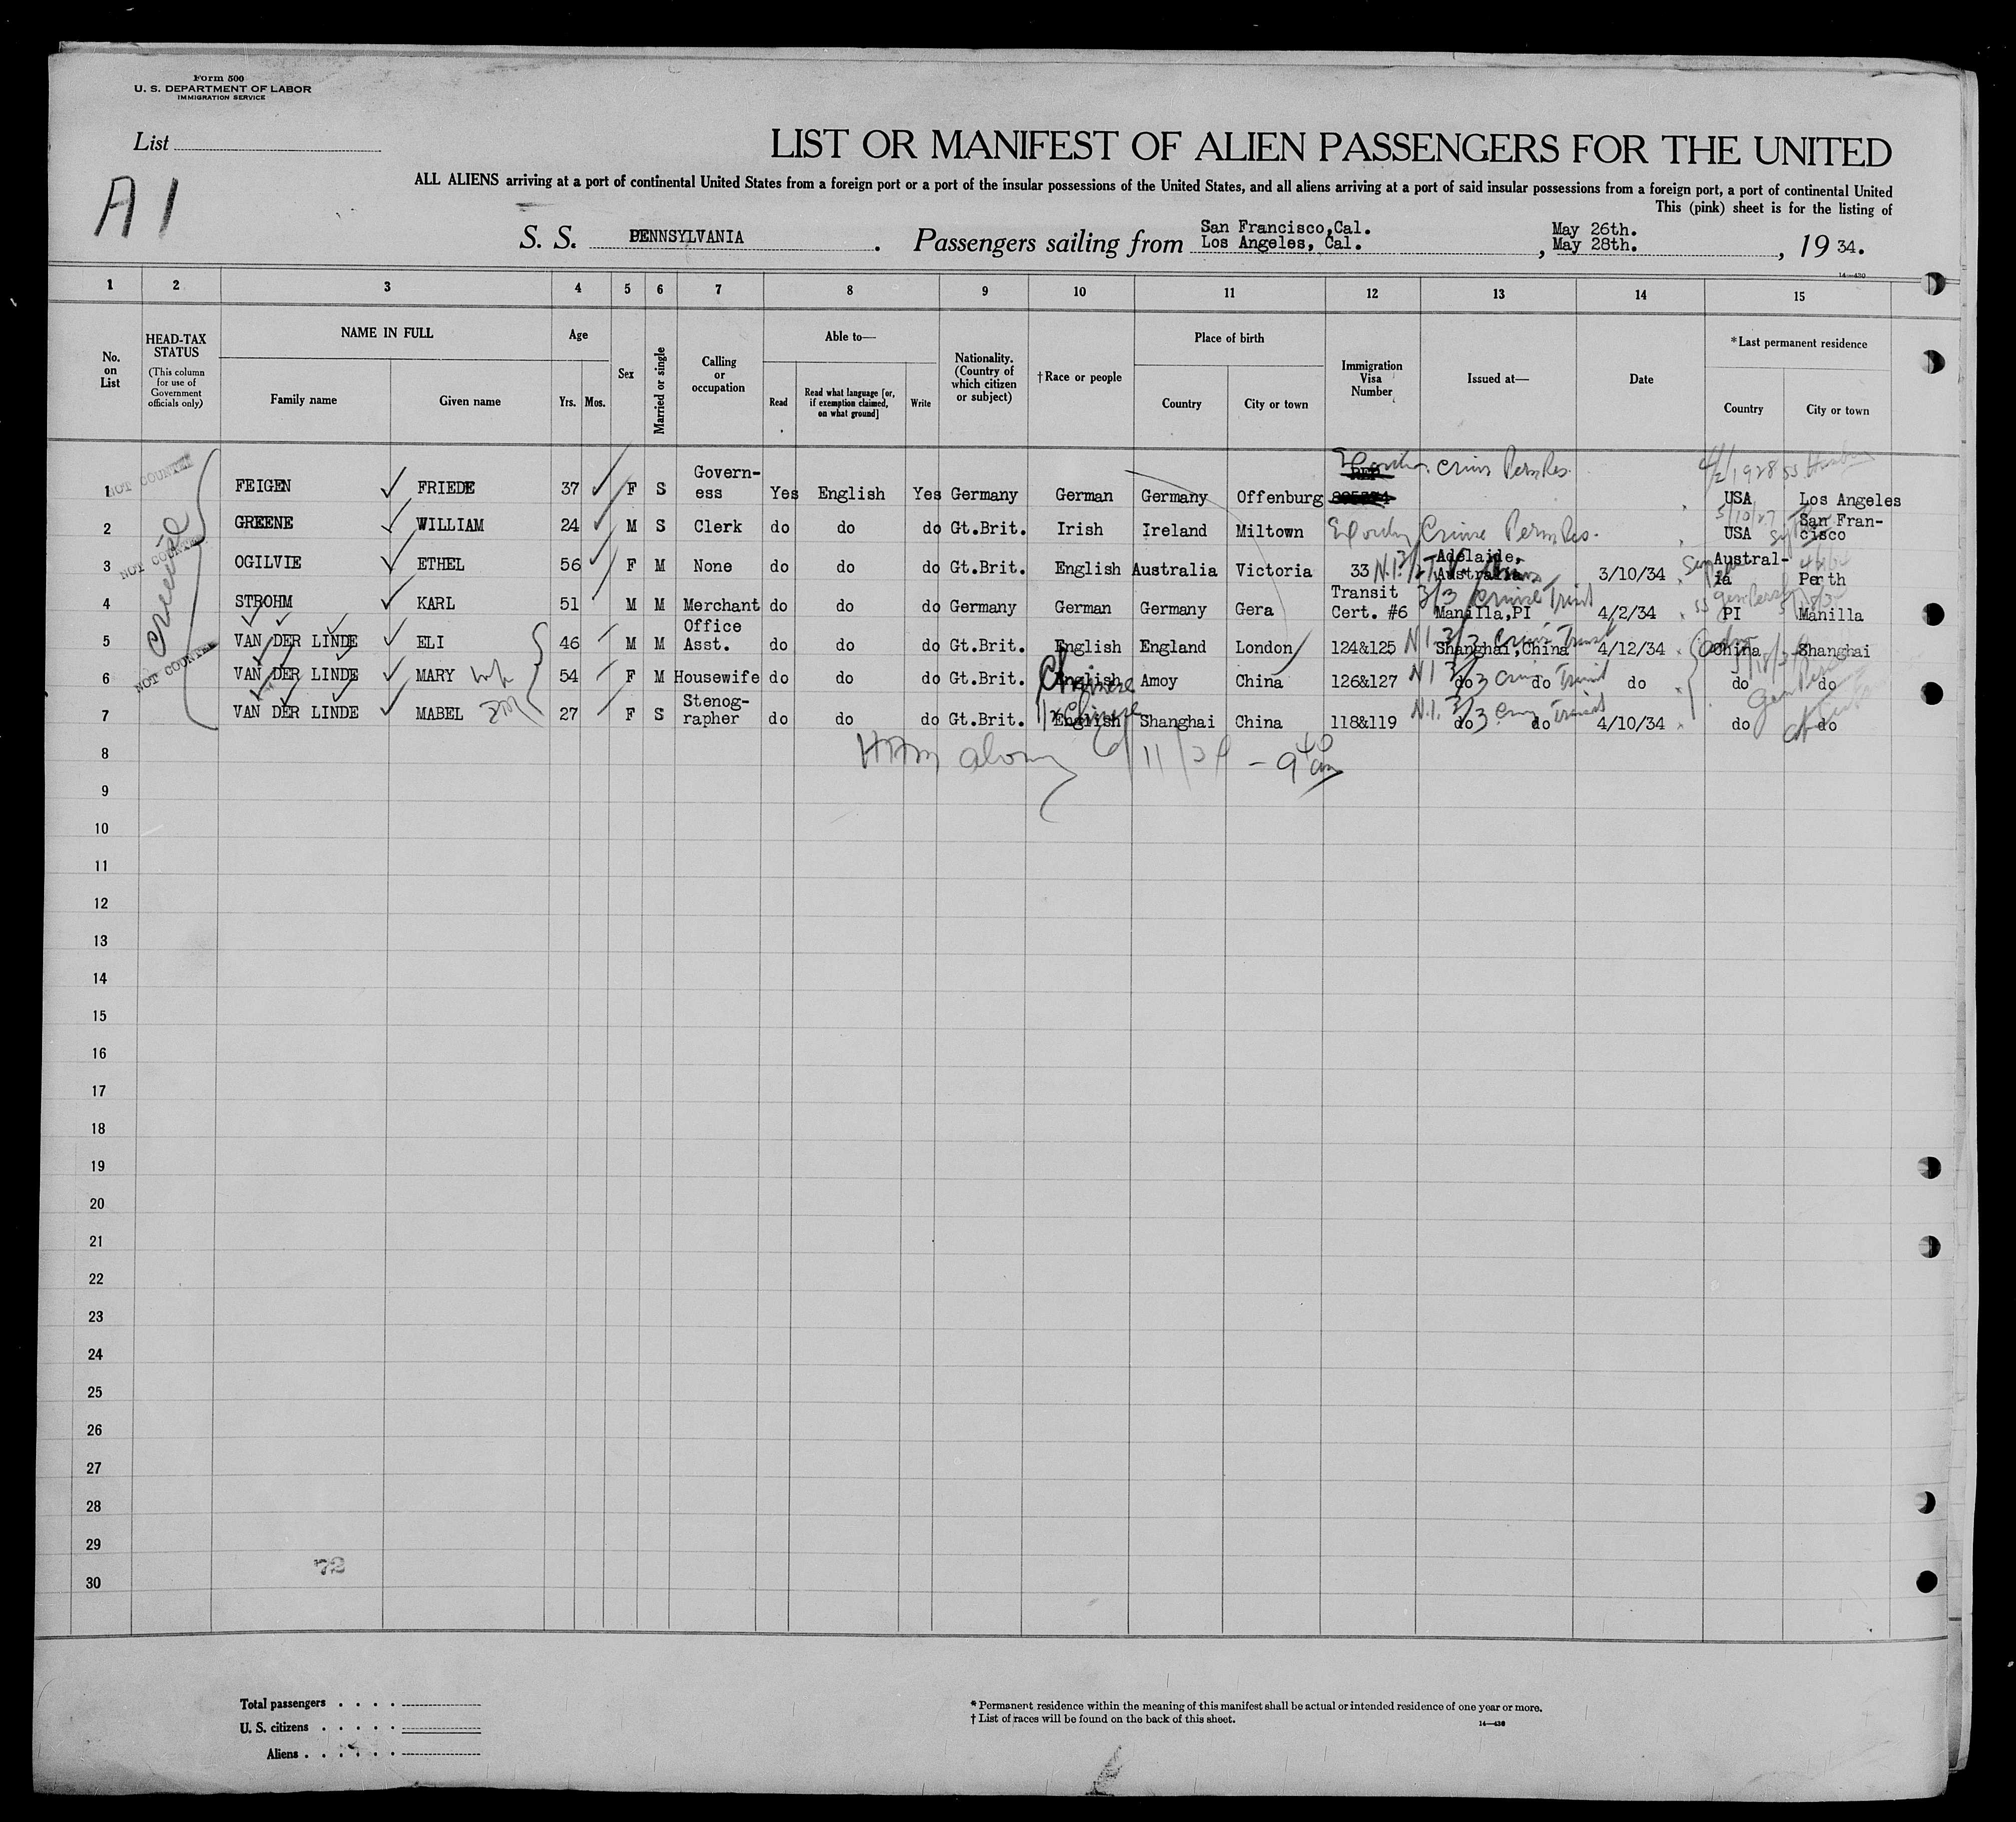 Form 500
U. S. DEPARTMENT OF LABOR
IMMIGRATION SERVICE
List
A1
LIST OR MANIFEST OF ALIEN PASSENGERS FOR THE UNITED
ALL ALIENS arriving at a port of continental United States from a foreign port or a port of the insular possessions of the United States, and all aliens arriving at a port of said insular possessions from a foreign port, a port of continental United
This (pink) sheet is for the listing of
S. S. PENNSYLVANIA. Passengers sailing from San Francisco,Cal. Los Angeles, Cal., May 26th. May 28th., 19 34.
14—430
1 2 3 4 5 6 7 8 9 10 11 12 13 14 15
No. on List
HEAD-TAX STATUS
(This column for use of Government officials only)
NAME IN FULL
Family name
Given name
Age
Yrs. Mos.
Sex
Married or single
Calling or occupation
Able to—
Read
Read what language [or, if exemption claimed, on what ground]
Write
Nationality. (Country of which citizen or subject)
†Race or people
Place of birth
Country
City or town
Immigration Visa Number
Issued at—
Date
*Last permanent residence
Country
City or town
NOT COUNTED
NOT COUNTED
NOT COUNTED
cruise
1 FEIGEN FRIEDE 37 F S Govern-ess Yes English Yes Germany German Germany Offenburg REP Perm Res. 1928 SS USA Los Angeles
2 GREENE WILLIAM 24 M S Clerk do do do Gt.Brit. Irish Ireland Miltown Perm Res. 5/10/27 USA San Fran-cisco
3 OGILVIE ETHEL 56 F M None do do do Gt.Brit. English Australia Victoria 33 N.I. Adelaide, Australia 3/10/34 Austral-ia Perth
4 STROHM KARL 51 M M Merchant do do do Germany German Germany Gera Transit Cert. #6 3/3 cruise Transit Manilla,PI 4/2/34 SS PI Manilla
5 VAN DER LINDE ELI 46 M M Office Asst. do do do Gt.Brit. English England London 124&125 N.I. 3/3 Cruise Transit Shanghai,China 4/12/34 China Shanghai
6 VAN DER LINDE MARY 54 F M Housewife do do do Gt.Brit. English Chinese Amoy China 126&127 N I 3/3 Transit do do do do do
7 VAN DER LINDE MABEL 27 F S Stenog-rapher do do do Gt.Brit. English Chinese Shanghai China 118&119 N.I. 3/3 Transit do do 4/10/34 do do
6/11/34 - 9 40 am
8
9
10
11
12
13
14
15
16
17
18
19
20
21
22
23
24
25
26
27
28
29
30
72
Total passengers
U. S. citizens
Aliens
* Permanent residence within the meaning of this manifest shall be actual or intended residence of one year or more.
† List of races will be found on the back of this sheet.
14—430